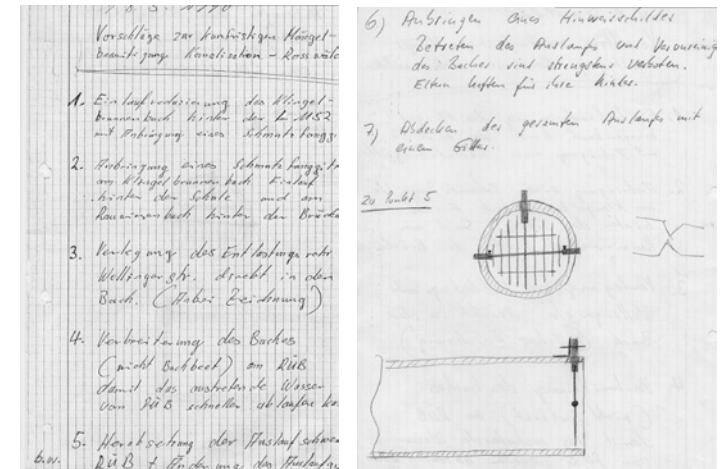 Vorschläge zur kurzfristigen Mängel-
beseitigung Kanalisation - Rosswäl
1. Einlaufreduzierung des Klingel-
brunnenbach hinter der L 1152
mit Anbringung eines Schmutzfangg
2. Anbringung eines Schmutzfanggitt
am Klingelbrunnenbach Einlauf
hinter der Schule und am
bach hinter der Brücke
3. Verlegung des Entlastungsrohr
Weilingerstr. direkt in den
Bach. (Anbei Zeichnung)
4. Verbreiterung des Baches
(nicht Bachbeet) am RÜB
damit das austretende Wasser
vom RÜB schneller ablaufen ka
5. Herabsetzung der Auslaufschwe
b.w. RÜB + Änderung des Auslaufgi
6) Anbringen eines Hinweisschildes
Betreten des Auslaufes und Verunreinig
des Baches sind strengstens verboten.
Eltern haften für ihre Kinder.
7) Abdecken des gesamten Auslaufes mit
einem Gitter.
Zu Punkt 5